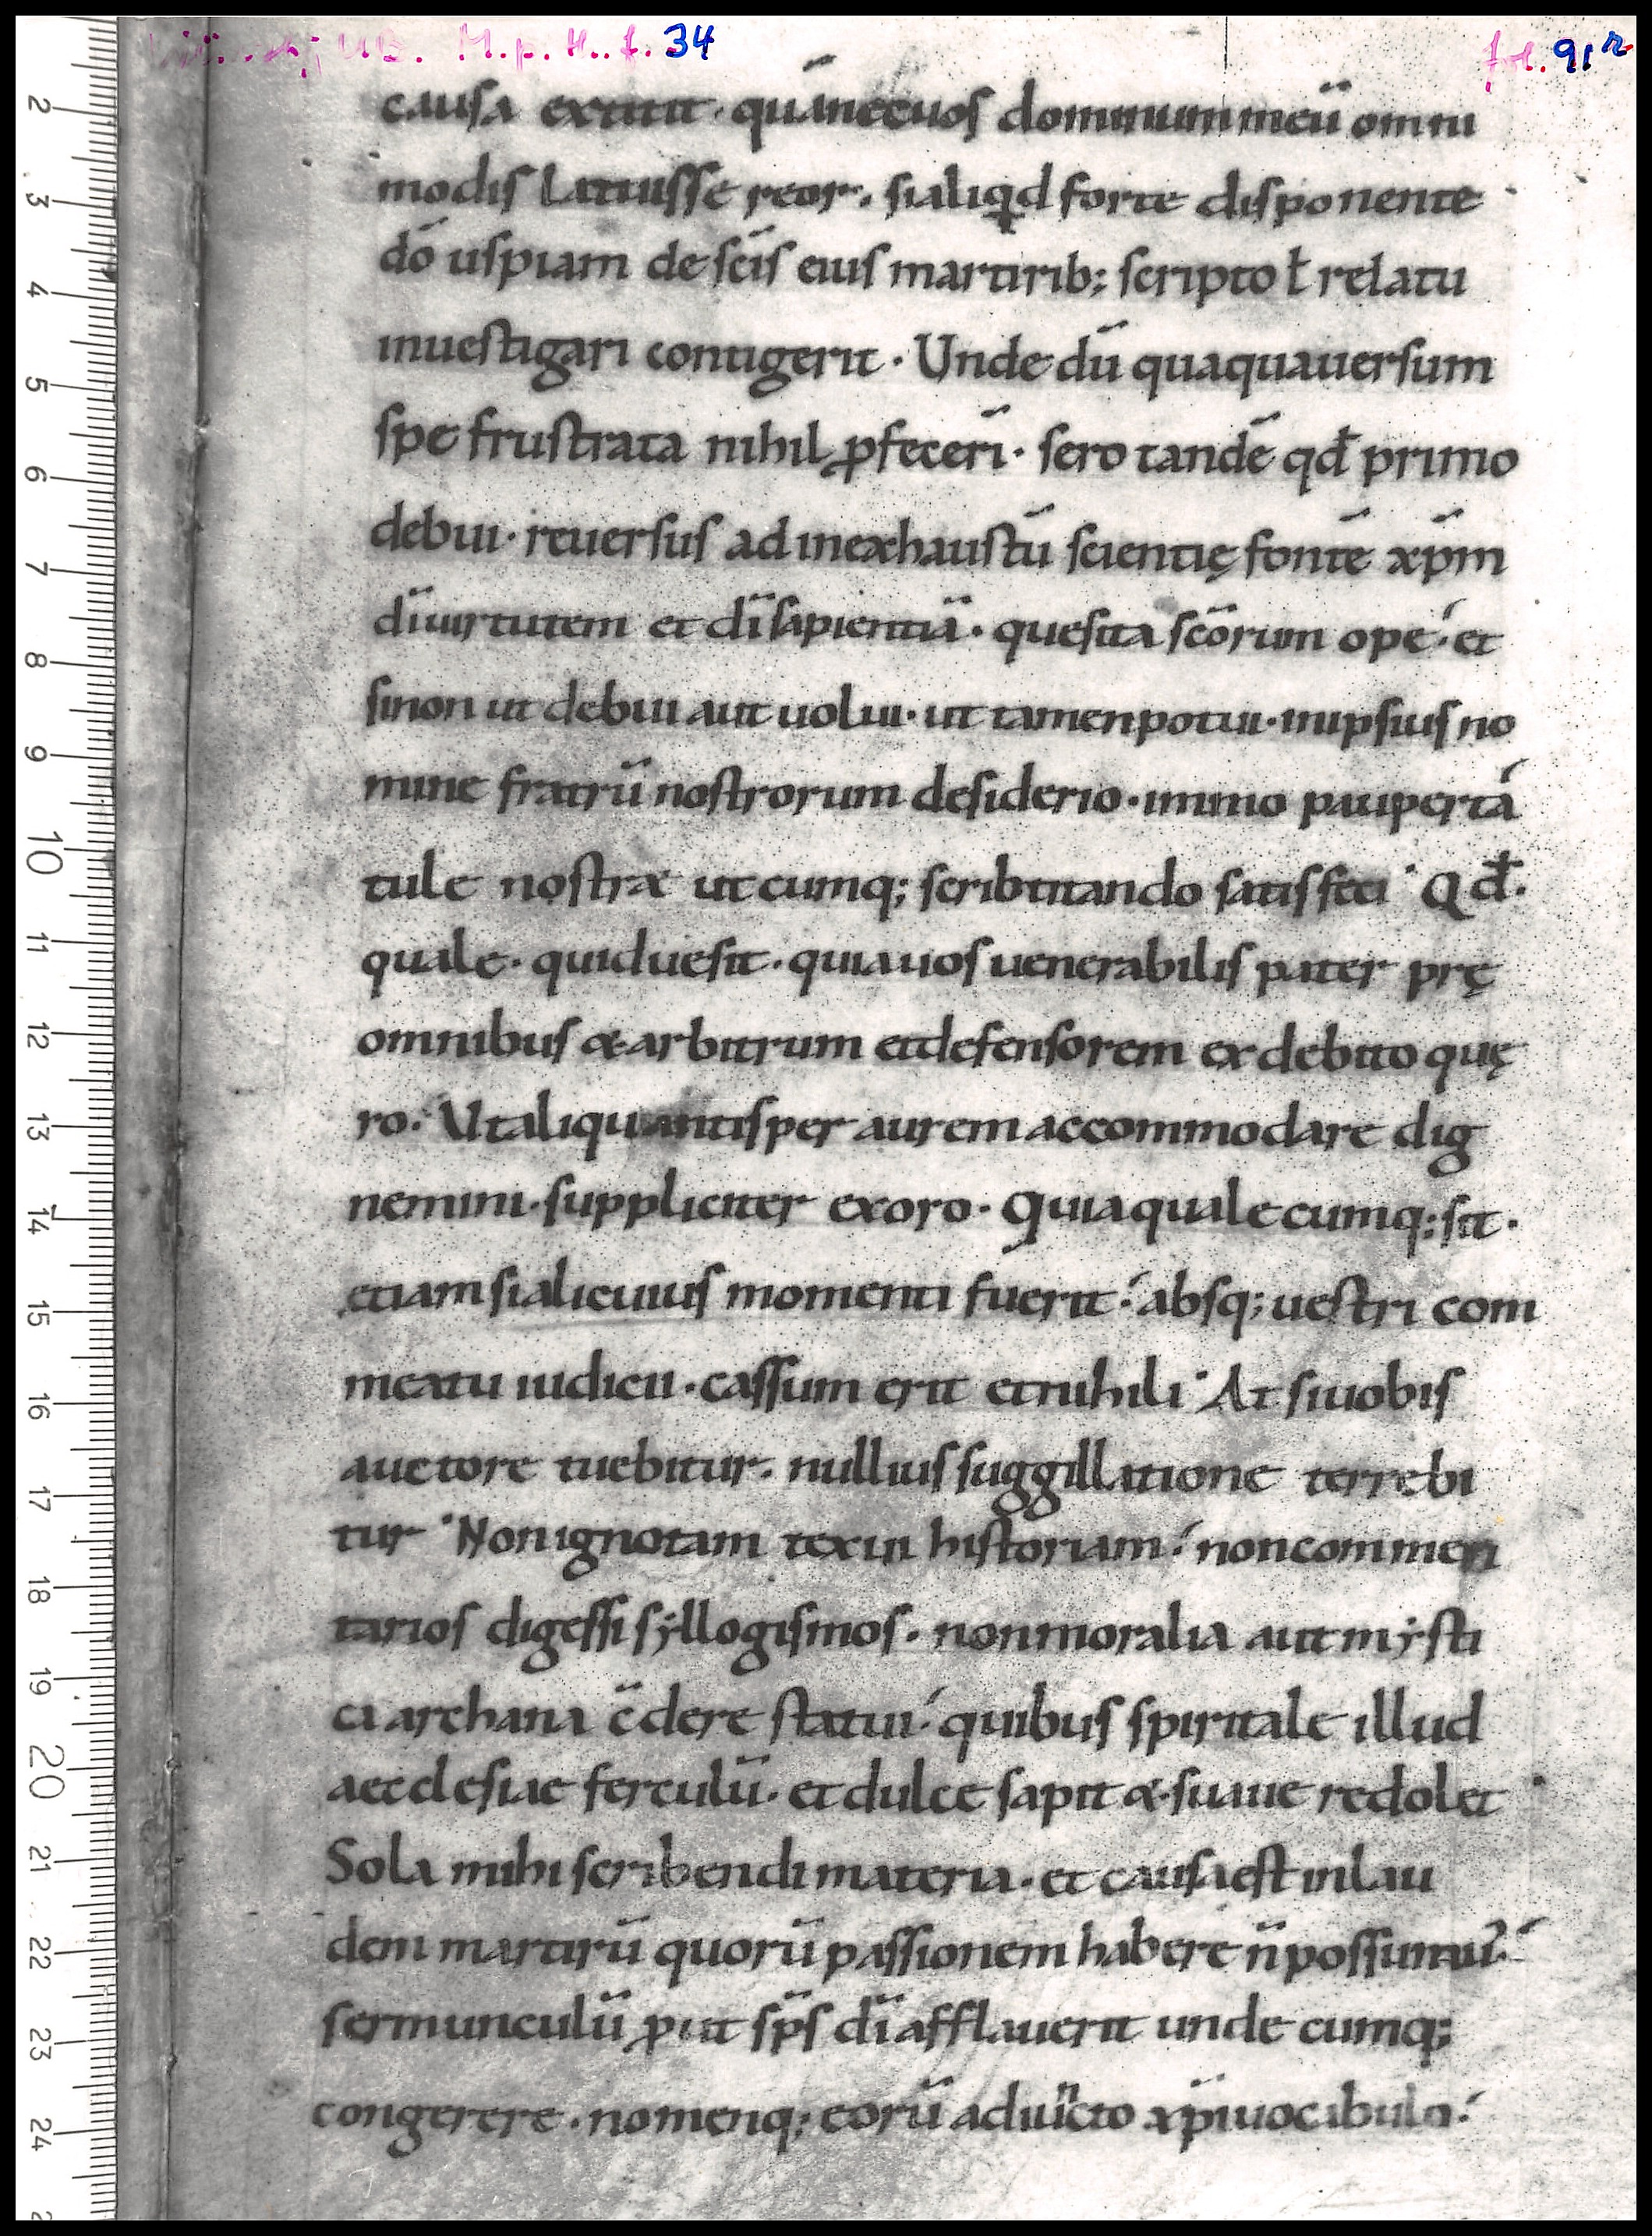 M. p. th. f. 34 fol. 91r
causa extitit · quā nec uos dominum meū omni
modis latuisse reor. si aliqd forte disponente
dō uspiam de scīs eius martirib; scripto ł relatu
inuestigari contigerit · Unde dū quaquauersum
spe frustrata nihil ꝓfecerī · sero tandē qđ primo
debui · reuersus ad inexhaustū scientię fontē xp̄m
dī uirtutem et dī sapientiā · quesita scōrum ope · et
si non ut debui aut uolui · ut tamen potui · in ipsius no
mine fratrū nostrorum desiderio · immo paupertá
tule nostræ ut cumq; scribtitando satisfeci · Qđ ·
quale · quid ue sit · quia uos uenerabilis pater prę
omnibus & arbitrum et defensorem ex debito quę
ro · Ut aliquantisper aurem accommodare dig
nemini · suppliciter exoro · Quia qualecumq; sit ·
etiam si alicuius momenti fuerit · absq; uestri com
meatu iudicii · cassum erit et nihili · At si uobis
auctore tuebitur · nullius suggillatione terrebi
tur · Non ignotam texui historiam · non commen
tarios digessi sẏllogismos · non moralia aut mẏsti
ca archana c̄dere statui · quibus spiritale illud
aecclesiae ferculū · et dulce sapit & suaue redolet
Sola mihi scribendi materia · et causa est in lau
dem martirū quorū passionem habere n̄ possum ·
sermunculū ꝓut sp̄s dī afflauerit unde cumq;
congerere · nomenq; eorū adiūcto xp̄i uocabulo ·